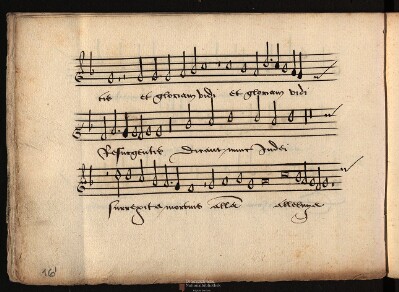 tis et gloriam vidi et gloriam vidi
Resurgentis Dicant nunc Judei
surrexit a mortuis alla alleluya
16